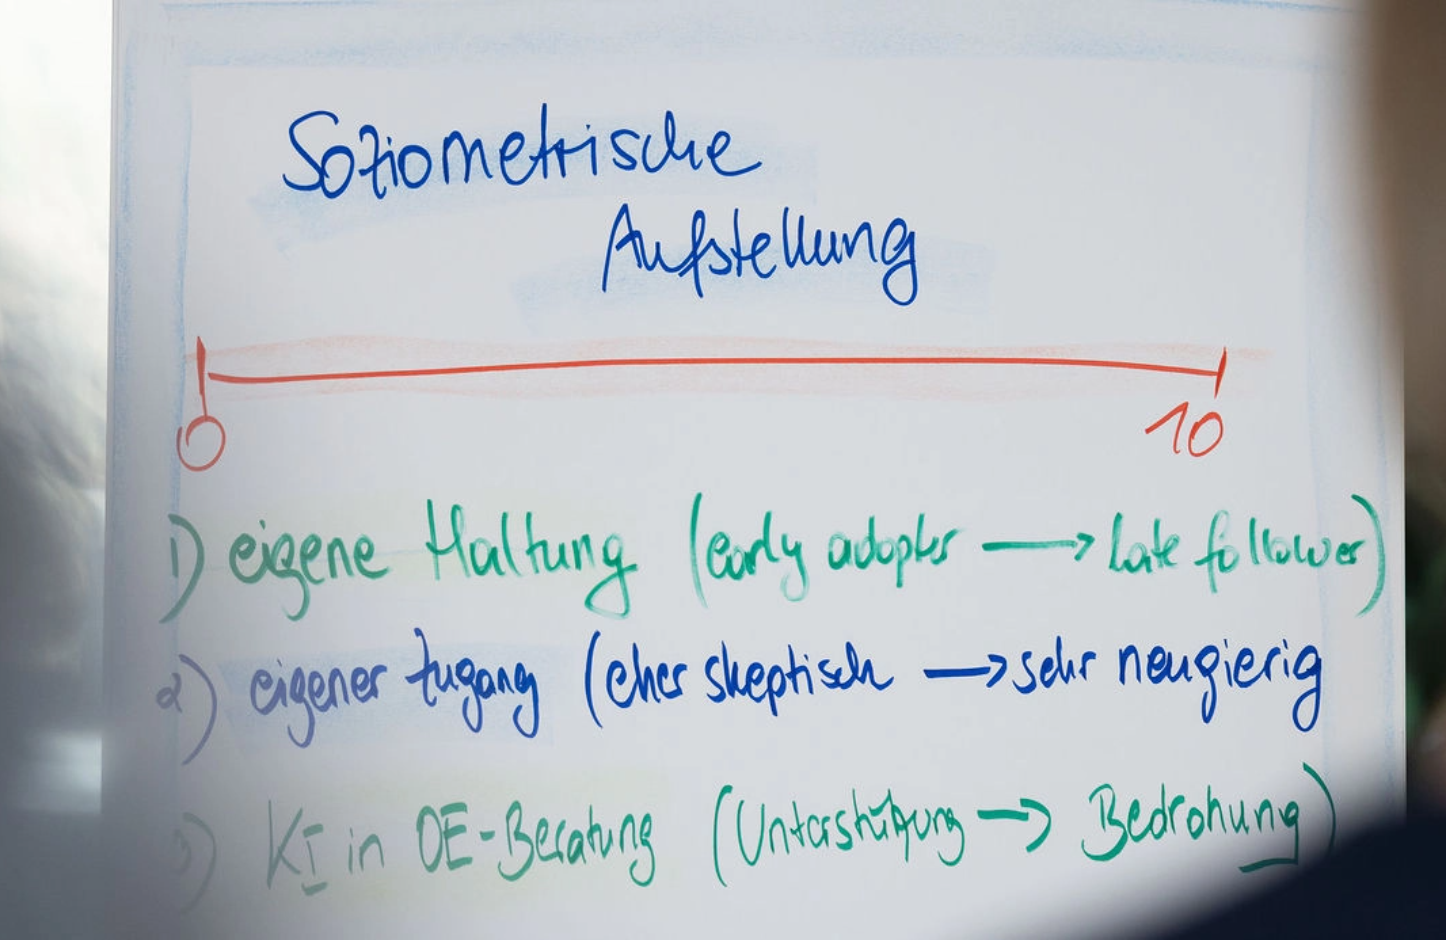 Soziometrische
Aufstellung
0 10
1) eigene Haltung (early adopter → late follower)
2) eigener Zugang (eher skeptisch → sehr neugierig
3) KI in OE-Beratung (Unterstützung → Bedrohung)